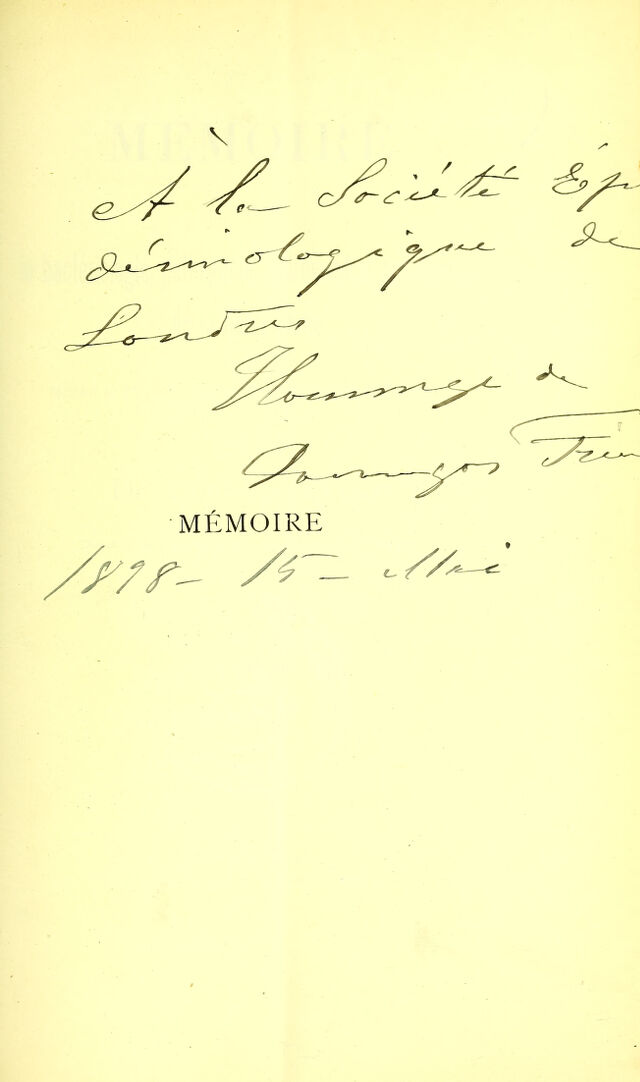 À la Société Épi
démiologique de
Londres
Hommage de
Domingos Frei
MÉMOIRE
1898 - 15 - Mai